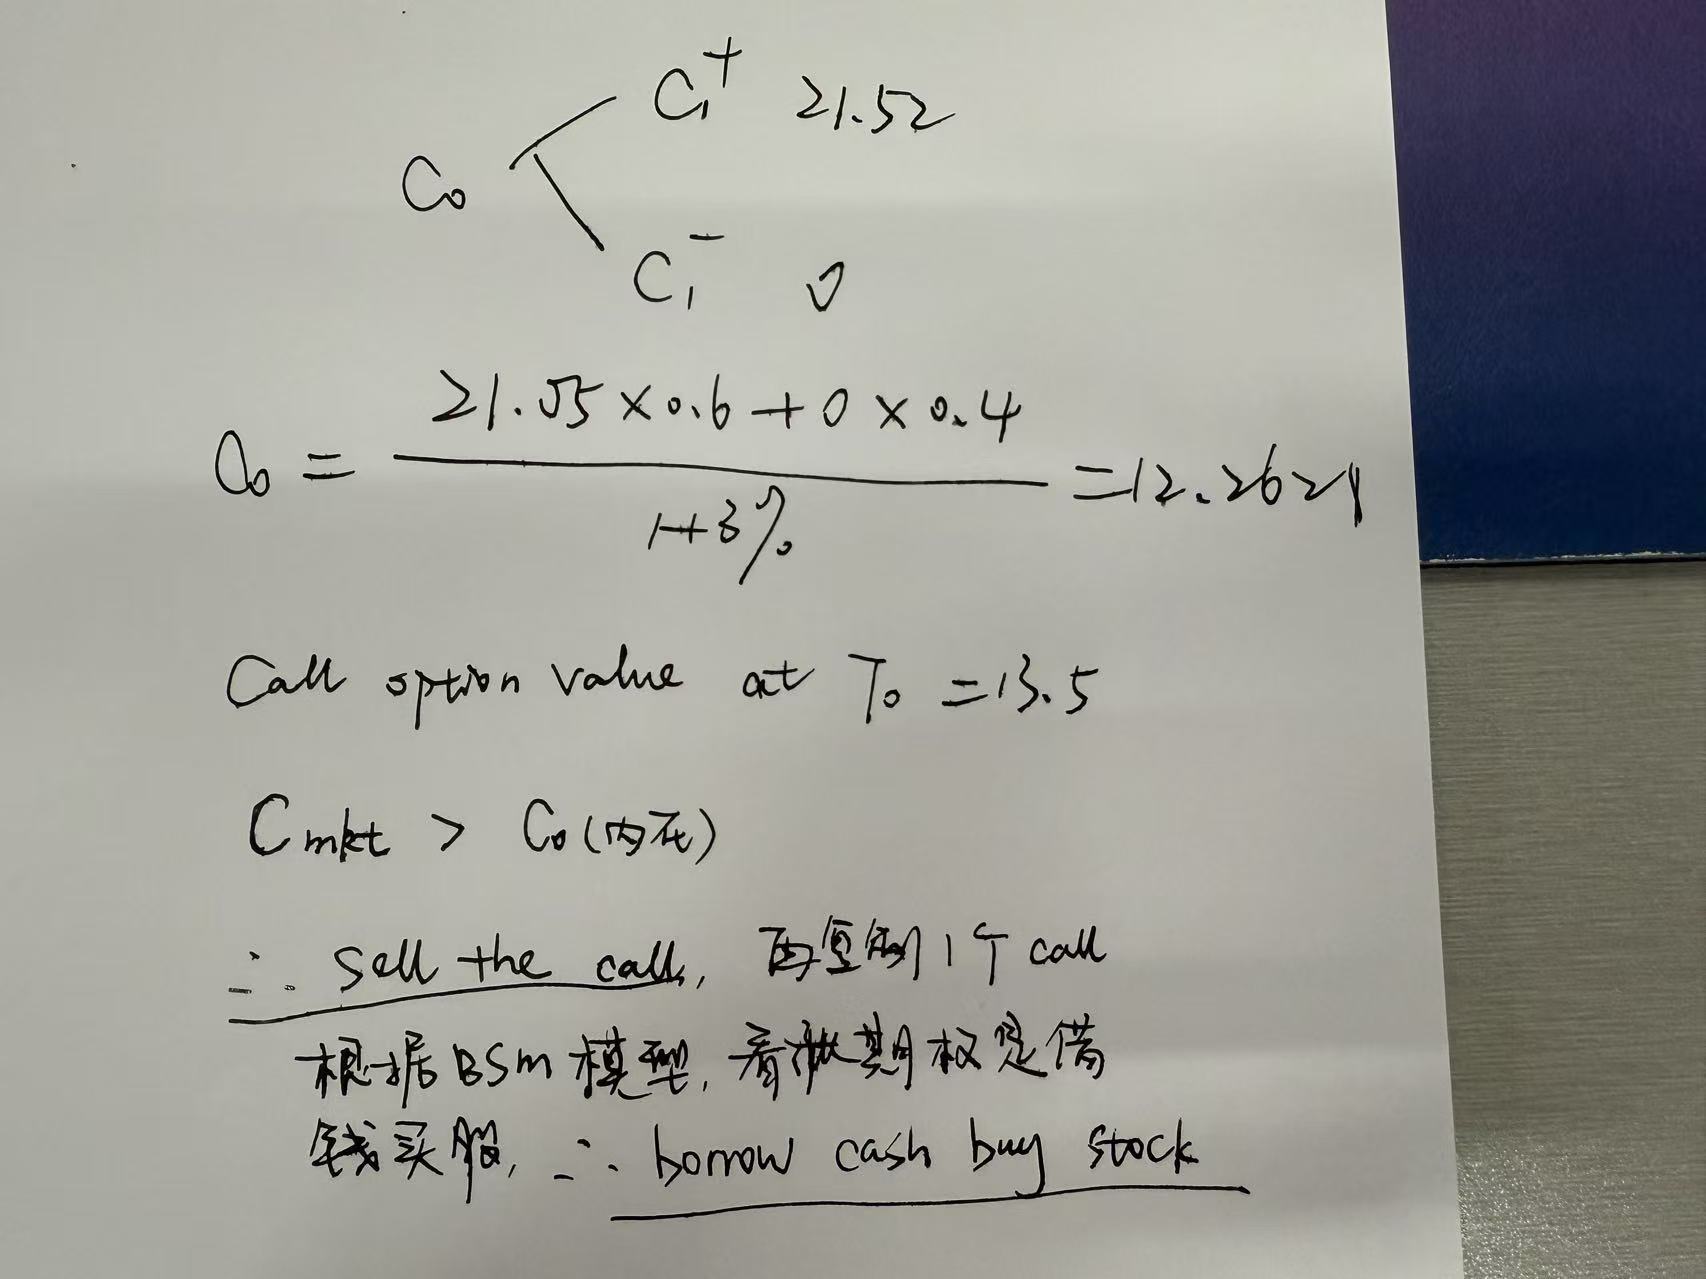 C₁⁺ 21.52
C₀
C₁⁻ 0
C₀ = (21.55 × 0.6 + 0 × 0.4) / (1+3%) = 12.2621
Call option value at T₀ = 13.5
Cmkt > C₀(内在)
∴ sell the call, 再复制1个call
根据BSm模型, 看涨期权是借
钱买股, ∴ borrow cash buy stock